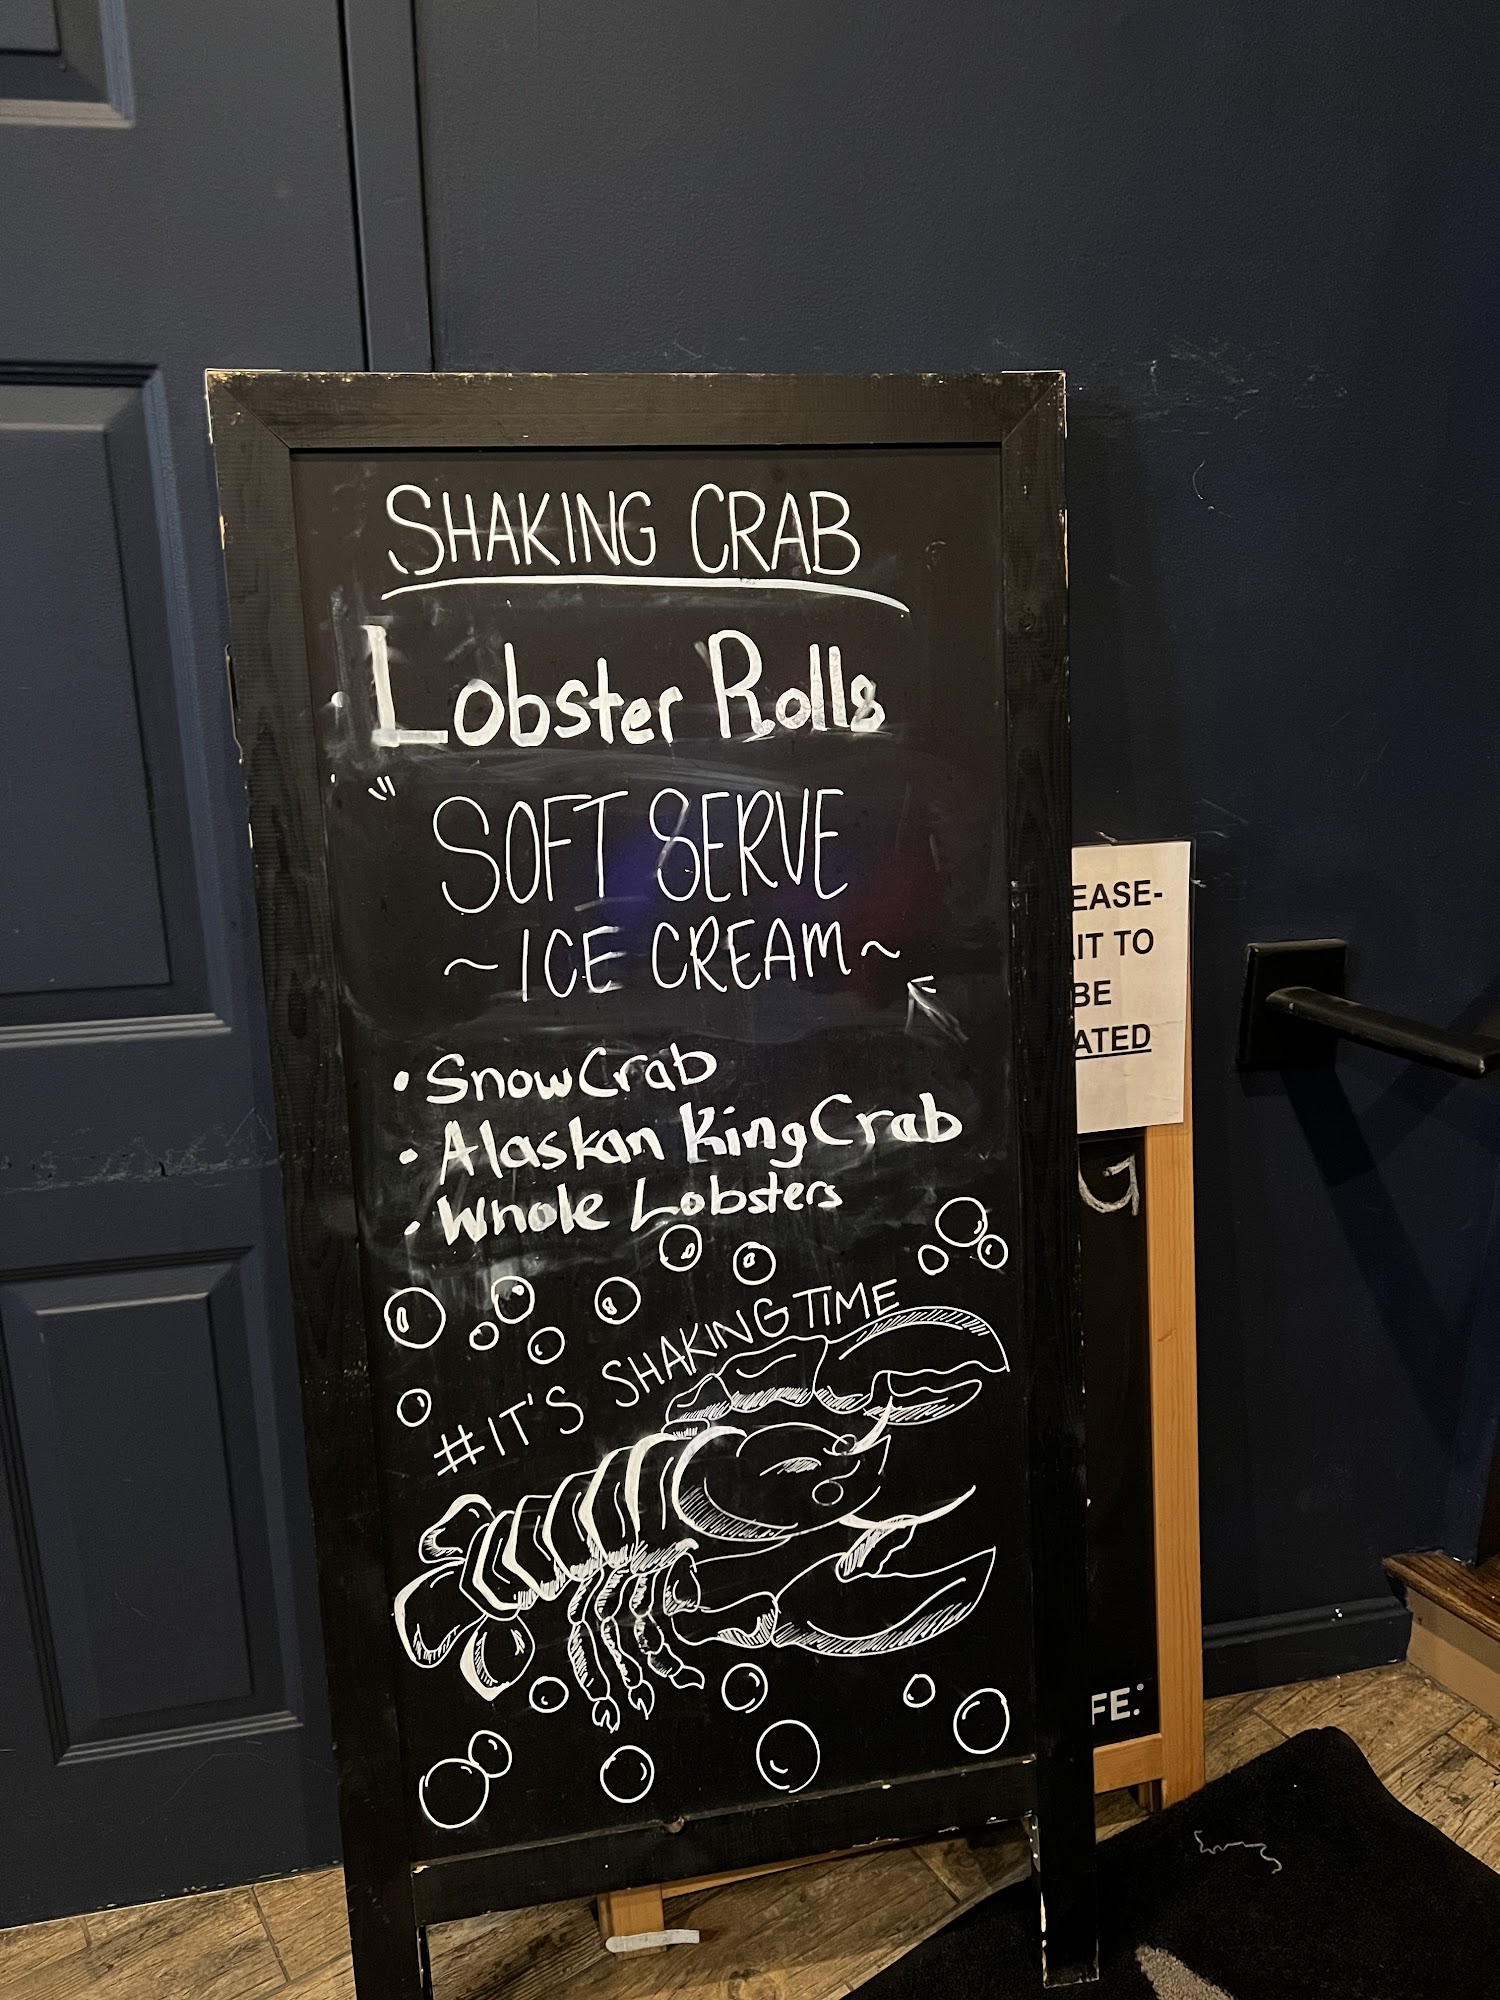 SHAKING CRAB
Lobster Rolls
SOFT SERVE
~ICE CREAM~
• Snow Crab
• Alaskan King Crab
• Whole Lobsters
#IT'S SHAKING TIME
EASE-
IT TO
BE
ATED
G
FE.